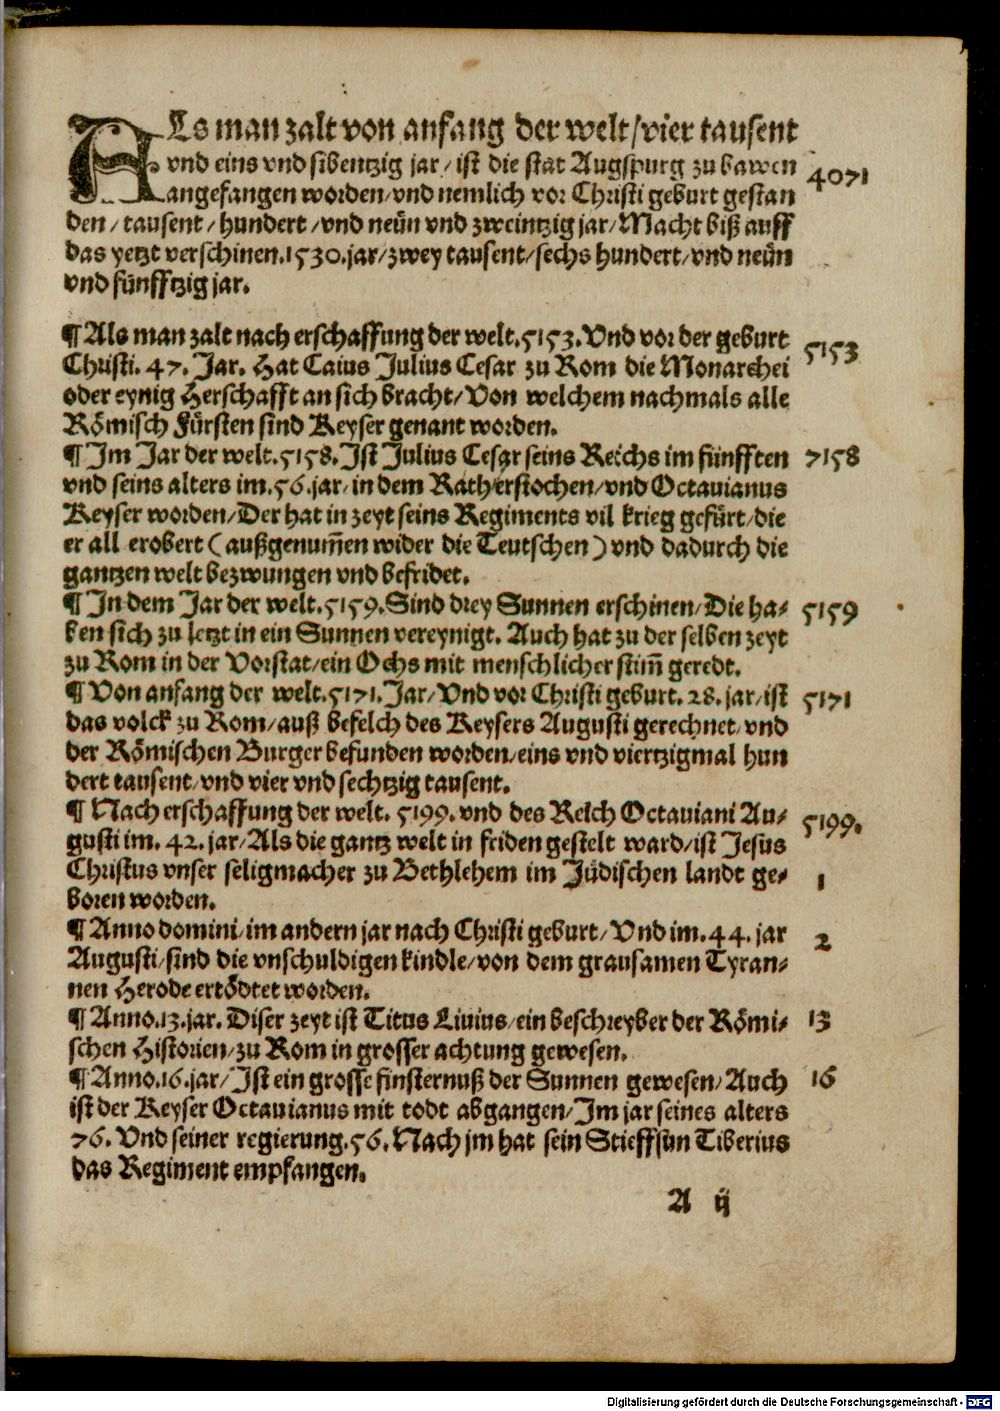 ALs man zalt von anfang der welt/vier tausent
vnd eins vnd sibentzig jar/ist die stat Augspurg zu bawen
4071
angefangen worden/vnd nemlich vor Christi geburt gestan
den/tausent/hundert/vnd neün vnd zweintzig jar/Macht biß auff
das yetzt verschinen.1530.jar/zwey tausent/sechs hundert/vnd neün
vnd fünfftzig jar.
¶ Als man zalt nach erschaffung der welt.5153.Vnd vor der geburt
5153
Christi. 47. Jar. Hat Caius Julius Cesar zu Rom die Monarchei
oder eynig Herschafft an sich bracht/Von welchem nachmals alle
Römisch Fürsten sind Keyser genant worden.
¶ Im Jar der welt.5158.Ist Julius Cesar seins Reichs im fünfften
7158
vnd seins alters im.56.jar/in dem Rath erstochen/vnd Octauianus
Keyser worden/Der hat in zeyt seins Regiments vil krieg gefürt/die
er all erobert (außgenum̄en wider die Teutschen) vnd dadurch die
gantzen welt bezwungen vnd befridet.
¶ In dem Jar der welt.5159.Sind drey Sunnen erschinen/Die ha-
5159
ben sich zu letzt in ein Sunnen vereynigt. Auch hat zu der selben zeyt
zu Rom in der Vorstat/ein Ochs mit menschlicher stim̄ geredt.
¶ Von anfang der welt.5171.Jar/Vnd vor Christi geburt. 28. jar/ist
5171
das volck zu Rom/auß befelch des Keysers Augusti gerechnet/vnd
der Römischen Burger befunden worden/eins vnd viertzigmal hun
dert tausent/vnd vier vnd sechtzig tausent.
¶ Nach erschaffung der welt. 5199. vnd des Reich Octauiani Au-
5199.
gusti im. 42. jar/Als die gantz welt in friden gestelt ward/ist Jesus
Christus vnser seligmacher zu Bethlehem im Jüdischen landt ge-
1
boren worden.
¶ Anno domini/im andern jar nach Christi geburt/Vnd im.44.jar
2
Augusti/sind die vnschuldigen kindle/von dem grausamen Tyran-
nen Herode ertödtet worden.
¶ Anno.13.jar. Diser zeyt ist Titus Liuius/ein beschreyber der Römi-
13
schen Historien/zu Rom in grosser achtung gewesen.
¶ Anno.16.jar/Ist ein grosse finsternuß der Sunnen gewesen/Auch
16
ist der Keyser Octauianus mit todt abgangen/Im jar seines alters
76. Vnd seiner regierung.56.Nach jm hat sein Stieffsun Tiberius
das Regiment empfangen.
A ij
Digitalisierung gefördert durch die Deutsche Forschungsgemeinschaft - DFG